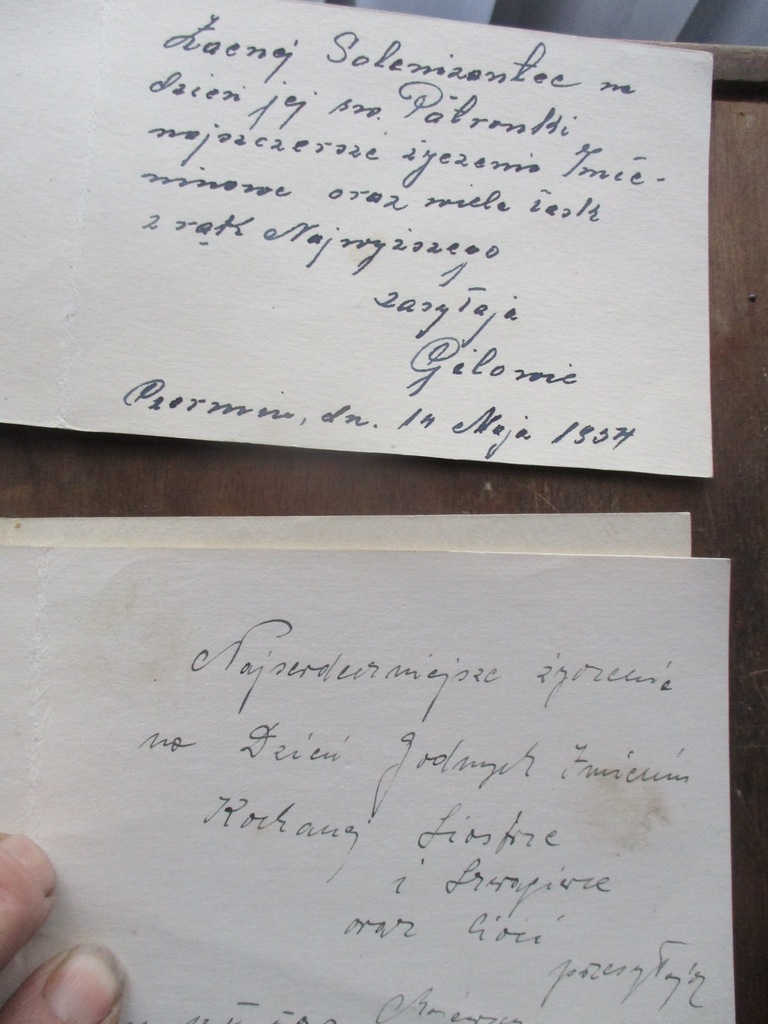 Zacnej Solenizantce na
dzień jej św. Patronki
najszczersze życzenia Imie-
ninowe oraz wiele łask
z rąk Najwyższego
zasyłają
Gilowie
dn. 14 Maja 1934
Najserdeczniejsze życzenia
na Dzień Godnych Imienin
Kochanej Siostrze
i Szwagierce
oraz Cioci
przesyłają